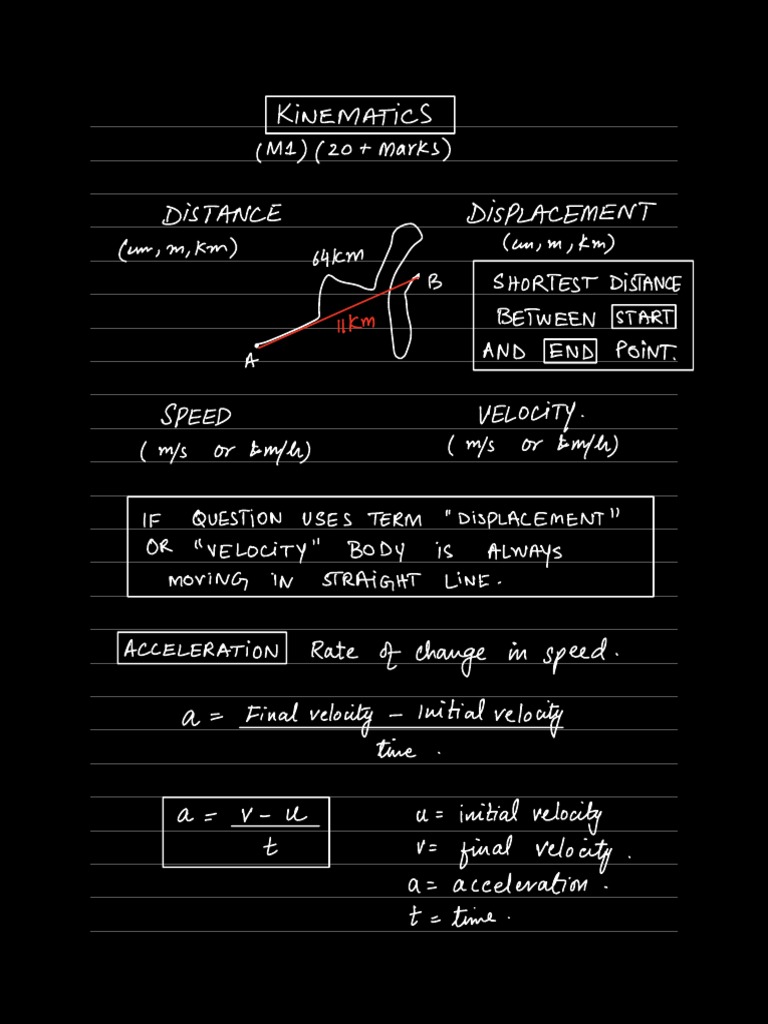 KINEMATICS
(M1) (20 + Marks)
DISTANCE
DISPLACEMENT
(cm, m, km)
(cm, m, km)
64km
B
11km
A
SHORTEST DISTANCE
BETWEEN START
AND END POINT.
SPEED
VELOCITY.
(m/s or km/h)
(m/s or km/h)
IF QUESTION USES TERM "DISPLACEMENT"
OR "VELOCITY" BODY IS ALWAYS
MOVING IN STRAIGHT LINE.
ACCELERATION Rate of change in speed.
a = Final velocity - Initial velocity
time.
a = v - u
t
u = initial velocity
v = final velocity.
a = acceleration.
t = time.